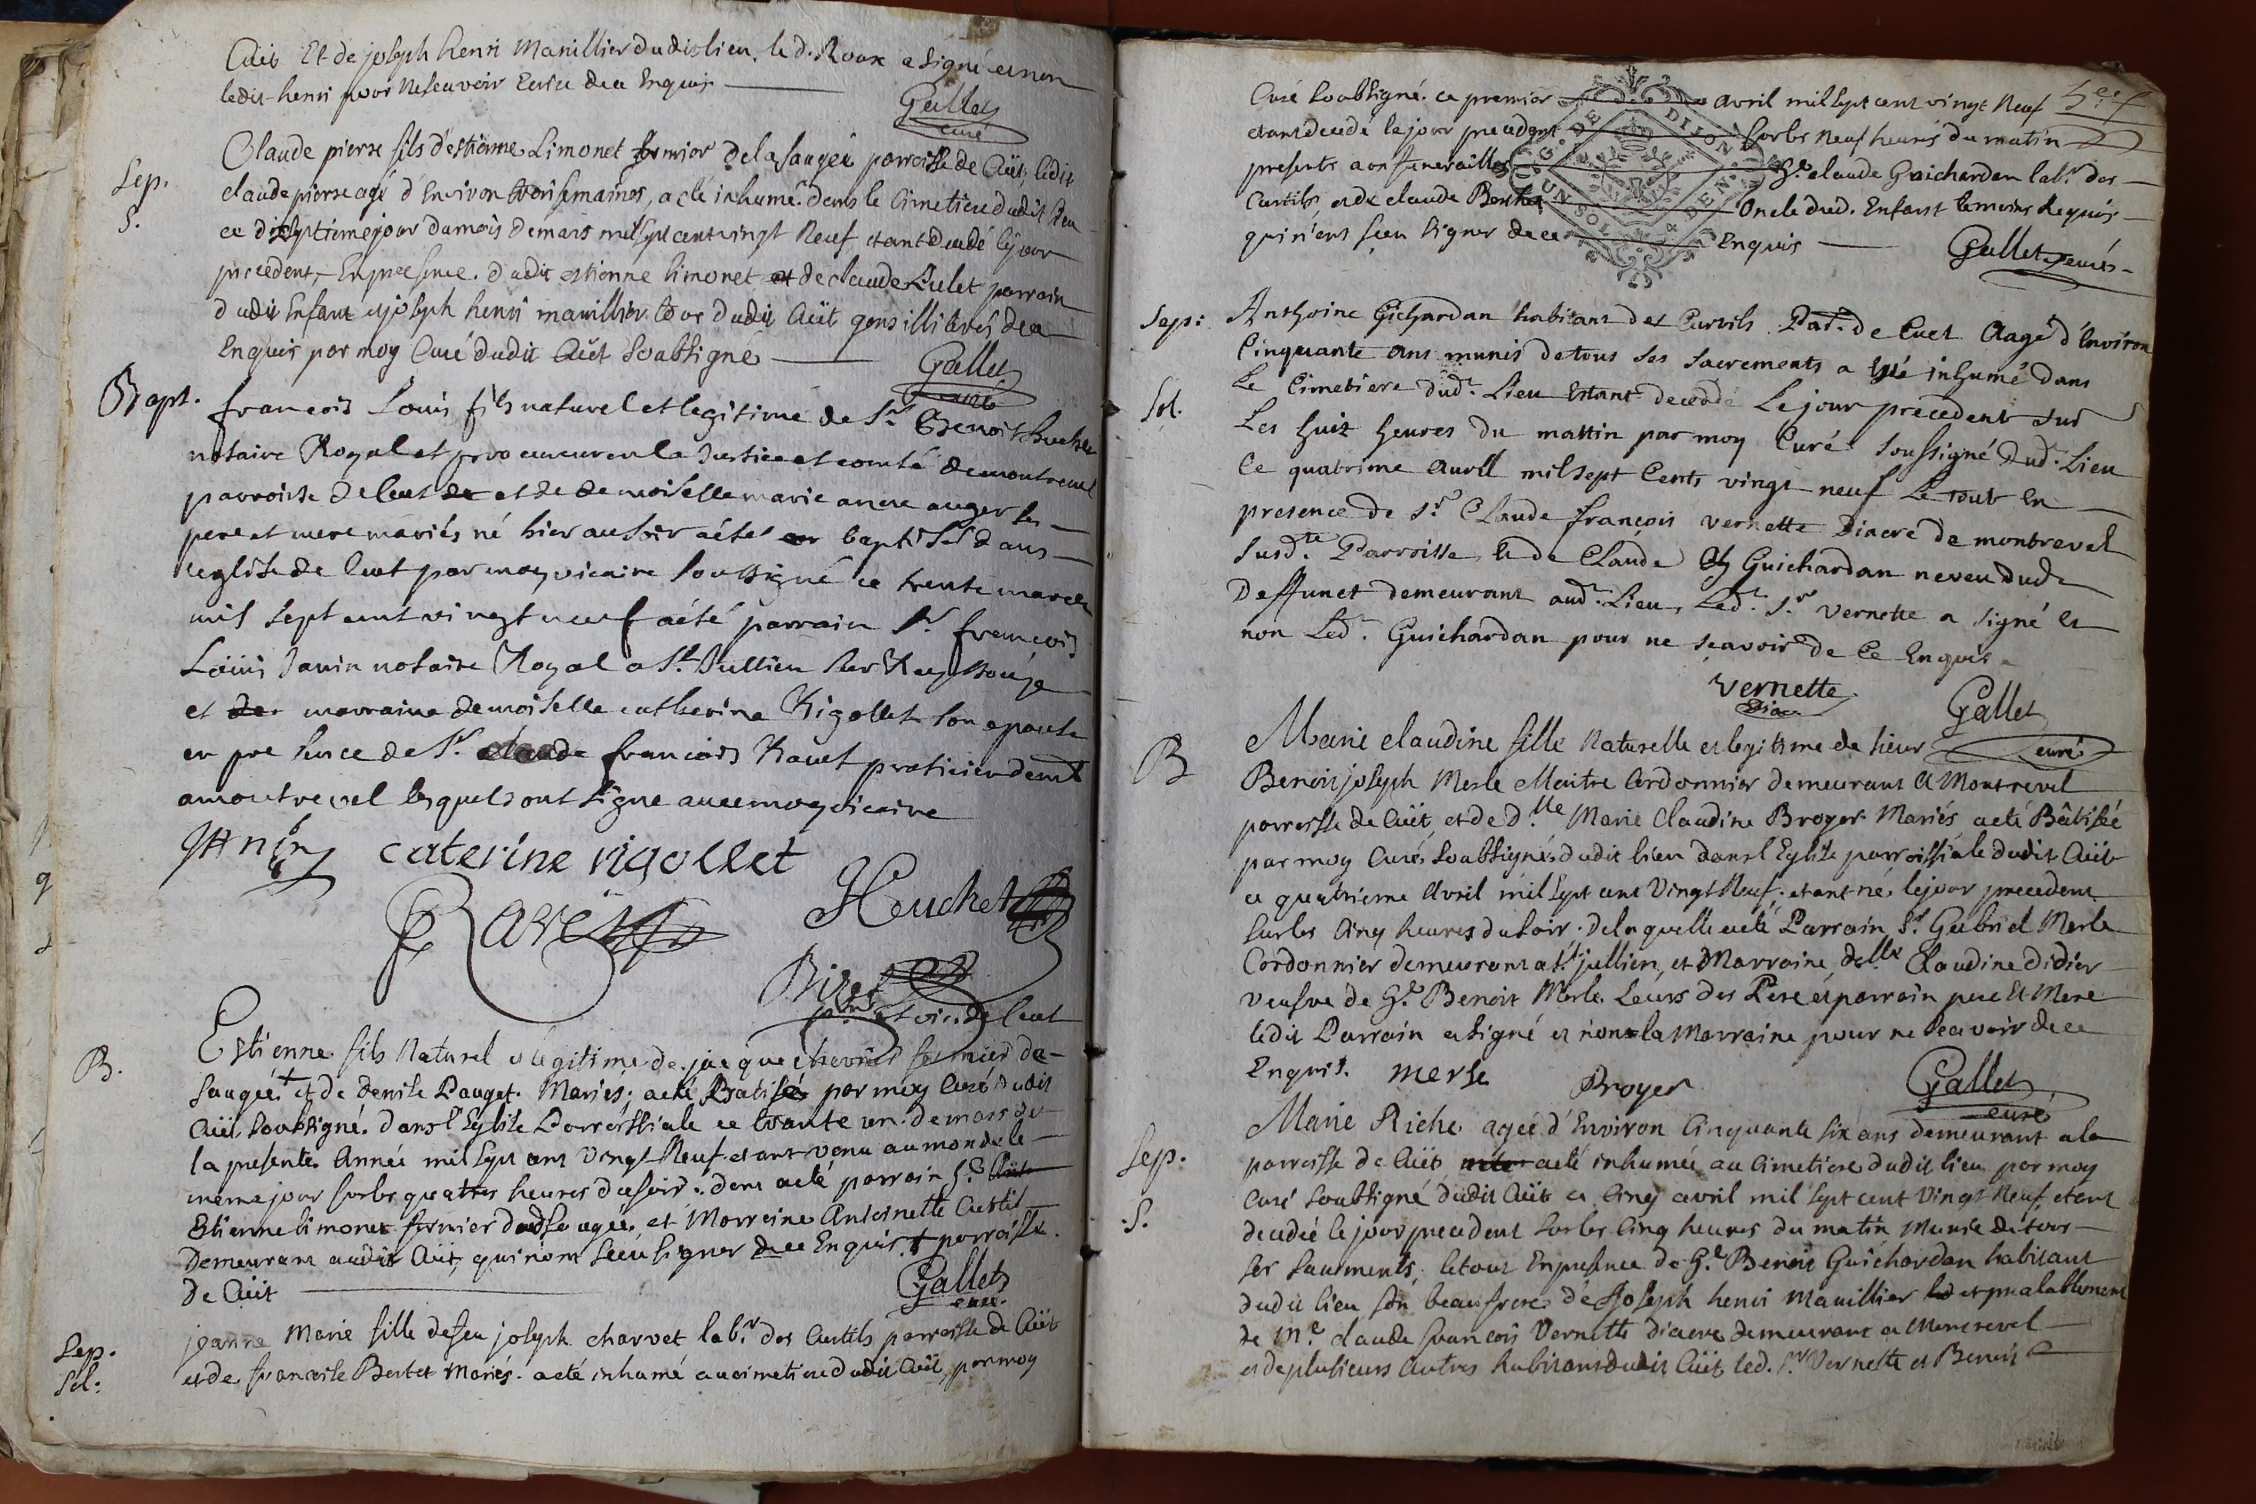 Cuët Et de joseph henri Manillier dudit lieu. le d. Roux a signé et non
ledit henri pour ne scavoir Ecrire de ce Enquis
Gallet
curé
Sep.
S.
Claude pierre fils d'estienne Limonet fermier de la saugée parroisse de Cuët, ledit
claude pierre agé d'Environ trois semaines, a eté inhumé dans le Cimetiere dudit lieu
ce dixseptieme jour du mois de mars mil sept cent vingt Neuf etant decedé le jour
precedent, En presence dudit estienne limonet et de claude parrain
dudit Enfant et joseph henri manillier tous dudit Cuët gens illiterés de ce
Enquis par moy Curé dudit Cuët soussigné
Gallet
curé
Bapt.
francois Louis fils naturel et legitime de Sr. Benoit huchet
notaire Royal et procureur en la Justice et comté de montrevel
parroisse de Cuet et de demoiselle marie anne auger ses
pere et mere mariés né hier au soir a été baptisé dans
l'eglise de Cuet par moy vicaire soussigné ce trente mars
mil sept cent vingt neuf a été parrain Sr. francois
Louis Janin notaire Royal a St. Jullien sur Reyssouze
et marraine demoiselle catherine Rigollet son epouse
en presence de Sr. claude francois Ravet praticien demt.
a montrevel lesquels ont signé avec moy vicaire
JAnin caterine rigollet
Ravet Heuchet
ptre. et vic. de Cuet
B.
Estienne fils Naturel et legitime de jacque chevrier fermier de
saugée + et de denise Pauget Mariés; a eté Batisé par moy Curé dudit
Cuët soussigné dans l'Eglise Parroissiale ce trante un de mars de
la presente Année mil sept cent Vingt Neuf etant venu au monde le
meme jour sur les quatres heures du soir. dont a eté parrain
Estienne limonet fermier dud. saugée, et Marreine Antoinette Curtil
Demeurant audit Cuët, qui n'ont scеu signer de ce Enquis. + parroisse
de Cuët
Gallet
curé.
Sep.
Sol:
jeanne Marie fille de feu joseph charvet labr. des Curtils parroisse de Cuët
et de francoise Bertet Mariés. a eté inhumé au cimetiere dudit Cuët, par moy
Curé soubsigné. ce premier avril mil sept cent vingt Neuf
etant decedé le jour precedent sur les Neuf heures du matin
presents a ses funerailles Gd. claude Guichardan labr. des
Curtils, et de claude Bertet Oncle dud. Enfant temoins Requis
qui n'ont sceu signer de ce Enquis
Gallet, curé
G. DE DIJON
UN SOL 4 DEN.
Sep:
Sol.
Anthoine Gichardan habitant des Curtils Par. de Cuet Aagé d'Environ
Cinquante ans munis de tous ses sacrements a esté inhumé dans
Le Cimetiere dudt. Lieu Estant decedé Le jour precedent sur
Les huit heures du mattin par moy Curé soussigné dudt. Lieu
Ce quatrieme Avril mil sept Cents vingt neuf Le tout En
presence de sr. Claude françois vernette Diacre de montrevel
susdte. Parroisse, et de Claude Guichardan neveu dudt.
Deffunct demeurant audt. Lieu, Ledt. sr. vernette a signé et
non Ledt. Guichardan pour ne scavoir de Ce Enquis
Vernette
Diacre
Gallet
curé
B
Marie claudine fille Naturelle et legitime de sieur
Benoit joseph Merle Maitre Cordonnier demeurant a Montrevel
parroisse de Cuët, et de dlle Marie Claudine Broyer Mariés, a eté Bâtisée
par moy Curé soubsigné dudit lieu dans l'Eglise parroissiale dudit Cuët
ce quatrieme Avril mil sept cent Vingt Neuf; etant née le jour precedent
sur les Cinq heures du soir. de laquelle a eté Parrain Sr. Gabriel Merle
Cordonnier demeurant a St. jullien, et Marraine delle Claudine didier
veufve de Gd. Benoit Merle. Leurs des Pere et parrain pere Et Mere
ledit Parrain a signé et non la Marraine pour ne scavoir de ce
Enquis. merle Broyer
Gallet
curé
Sep.
S.
Marie Riche agée d'Environ Cinquante six ans demeurant a la
parroisse de Cuët a eté inhumée au Cimetiere dudit lieu par moy
Curé soubsigné dudit Cuët ce Cinq avril mil sept cent Vingt Neuf, etant
decedée le jour precedent sur les Cinq heures du matin Munie de tous
ses sacrements, le tout En presence de Gd. Benoit Guichardan habitant
dudit lieu son beau frere, de Joseph henri Manillier et prealablement
de Me. claude francois Vernette diacre demeurant a Montrevel
et de plusieurs Autres habitans dudit Cuët led. Sr. Vernette et Benoit